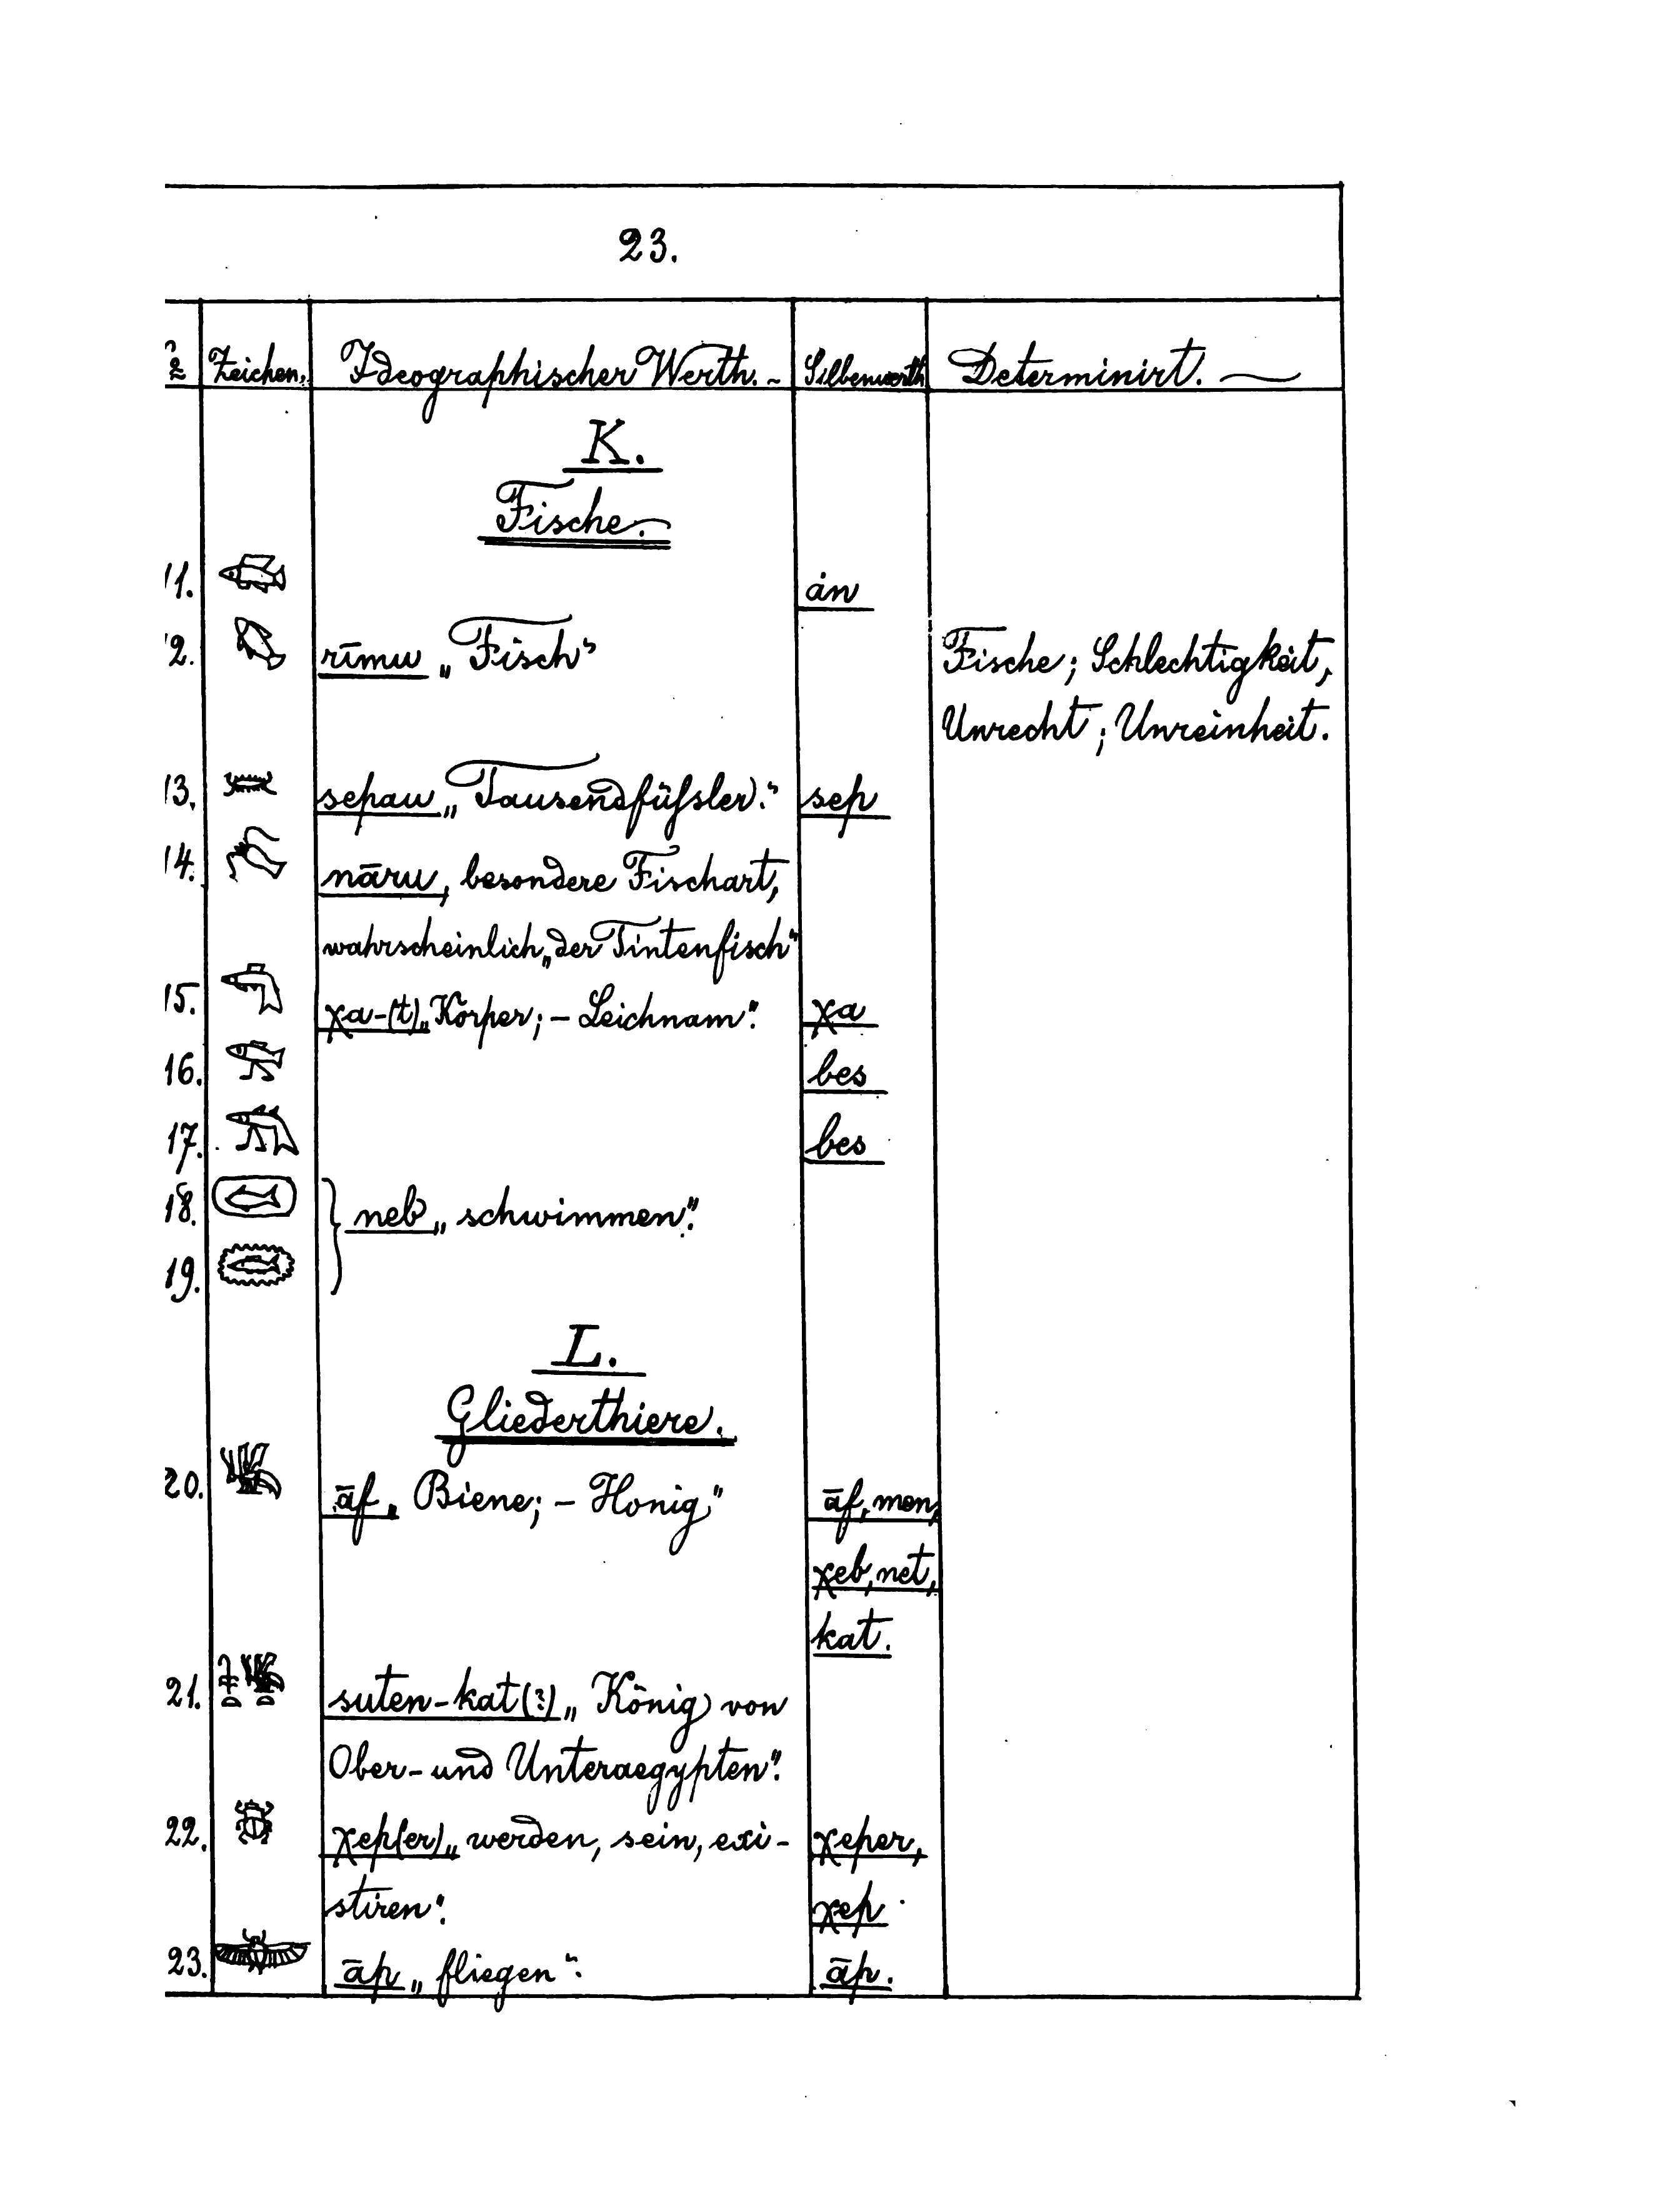 23.
Zeichen. Ideographischer Werth. Silbenwerth Determinirt.
K.
Fische.
11. ȧn
12. rīmu „Fisch“ Fische; Schlechtigkeit,
Unrecht; Unreinheit.
13. sepau „Tausendfüfsler.“ sep
14. nāru, besondere Fischart,
wahrscheinlich „der Tintenfisch“
15. χa-(t) „Körper; – Leichnam.“ χa
16. bes
17. bes
18. neb „schwimmen.“
19.
L.
Gliederthiere.
20. āf „Biene; – Honig“ āf, men,
χeb, net,
kat.
21. suten-kat(?) „König von
Ober- und Unteraegypten.“
22. χep(er) „werden, sein, exi- χeper,
stiren.“ χep
23. āp „fliegen“. āp.